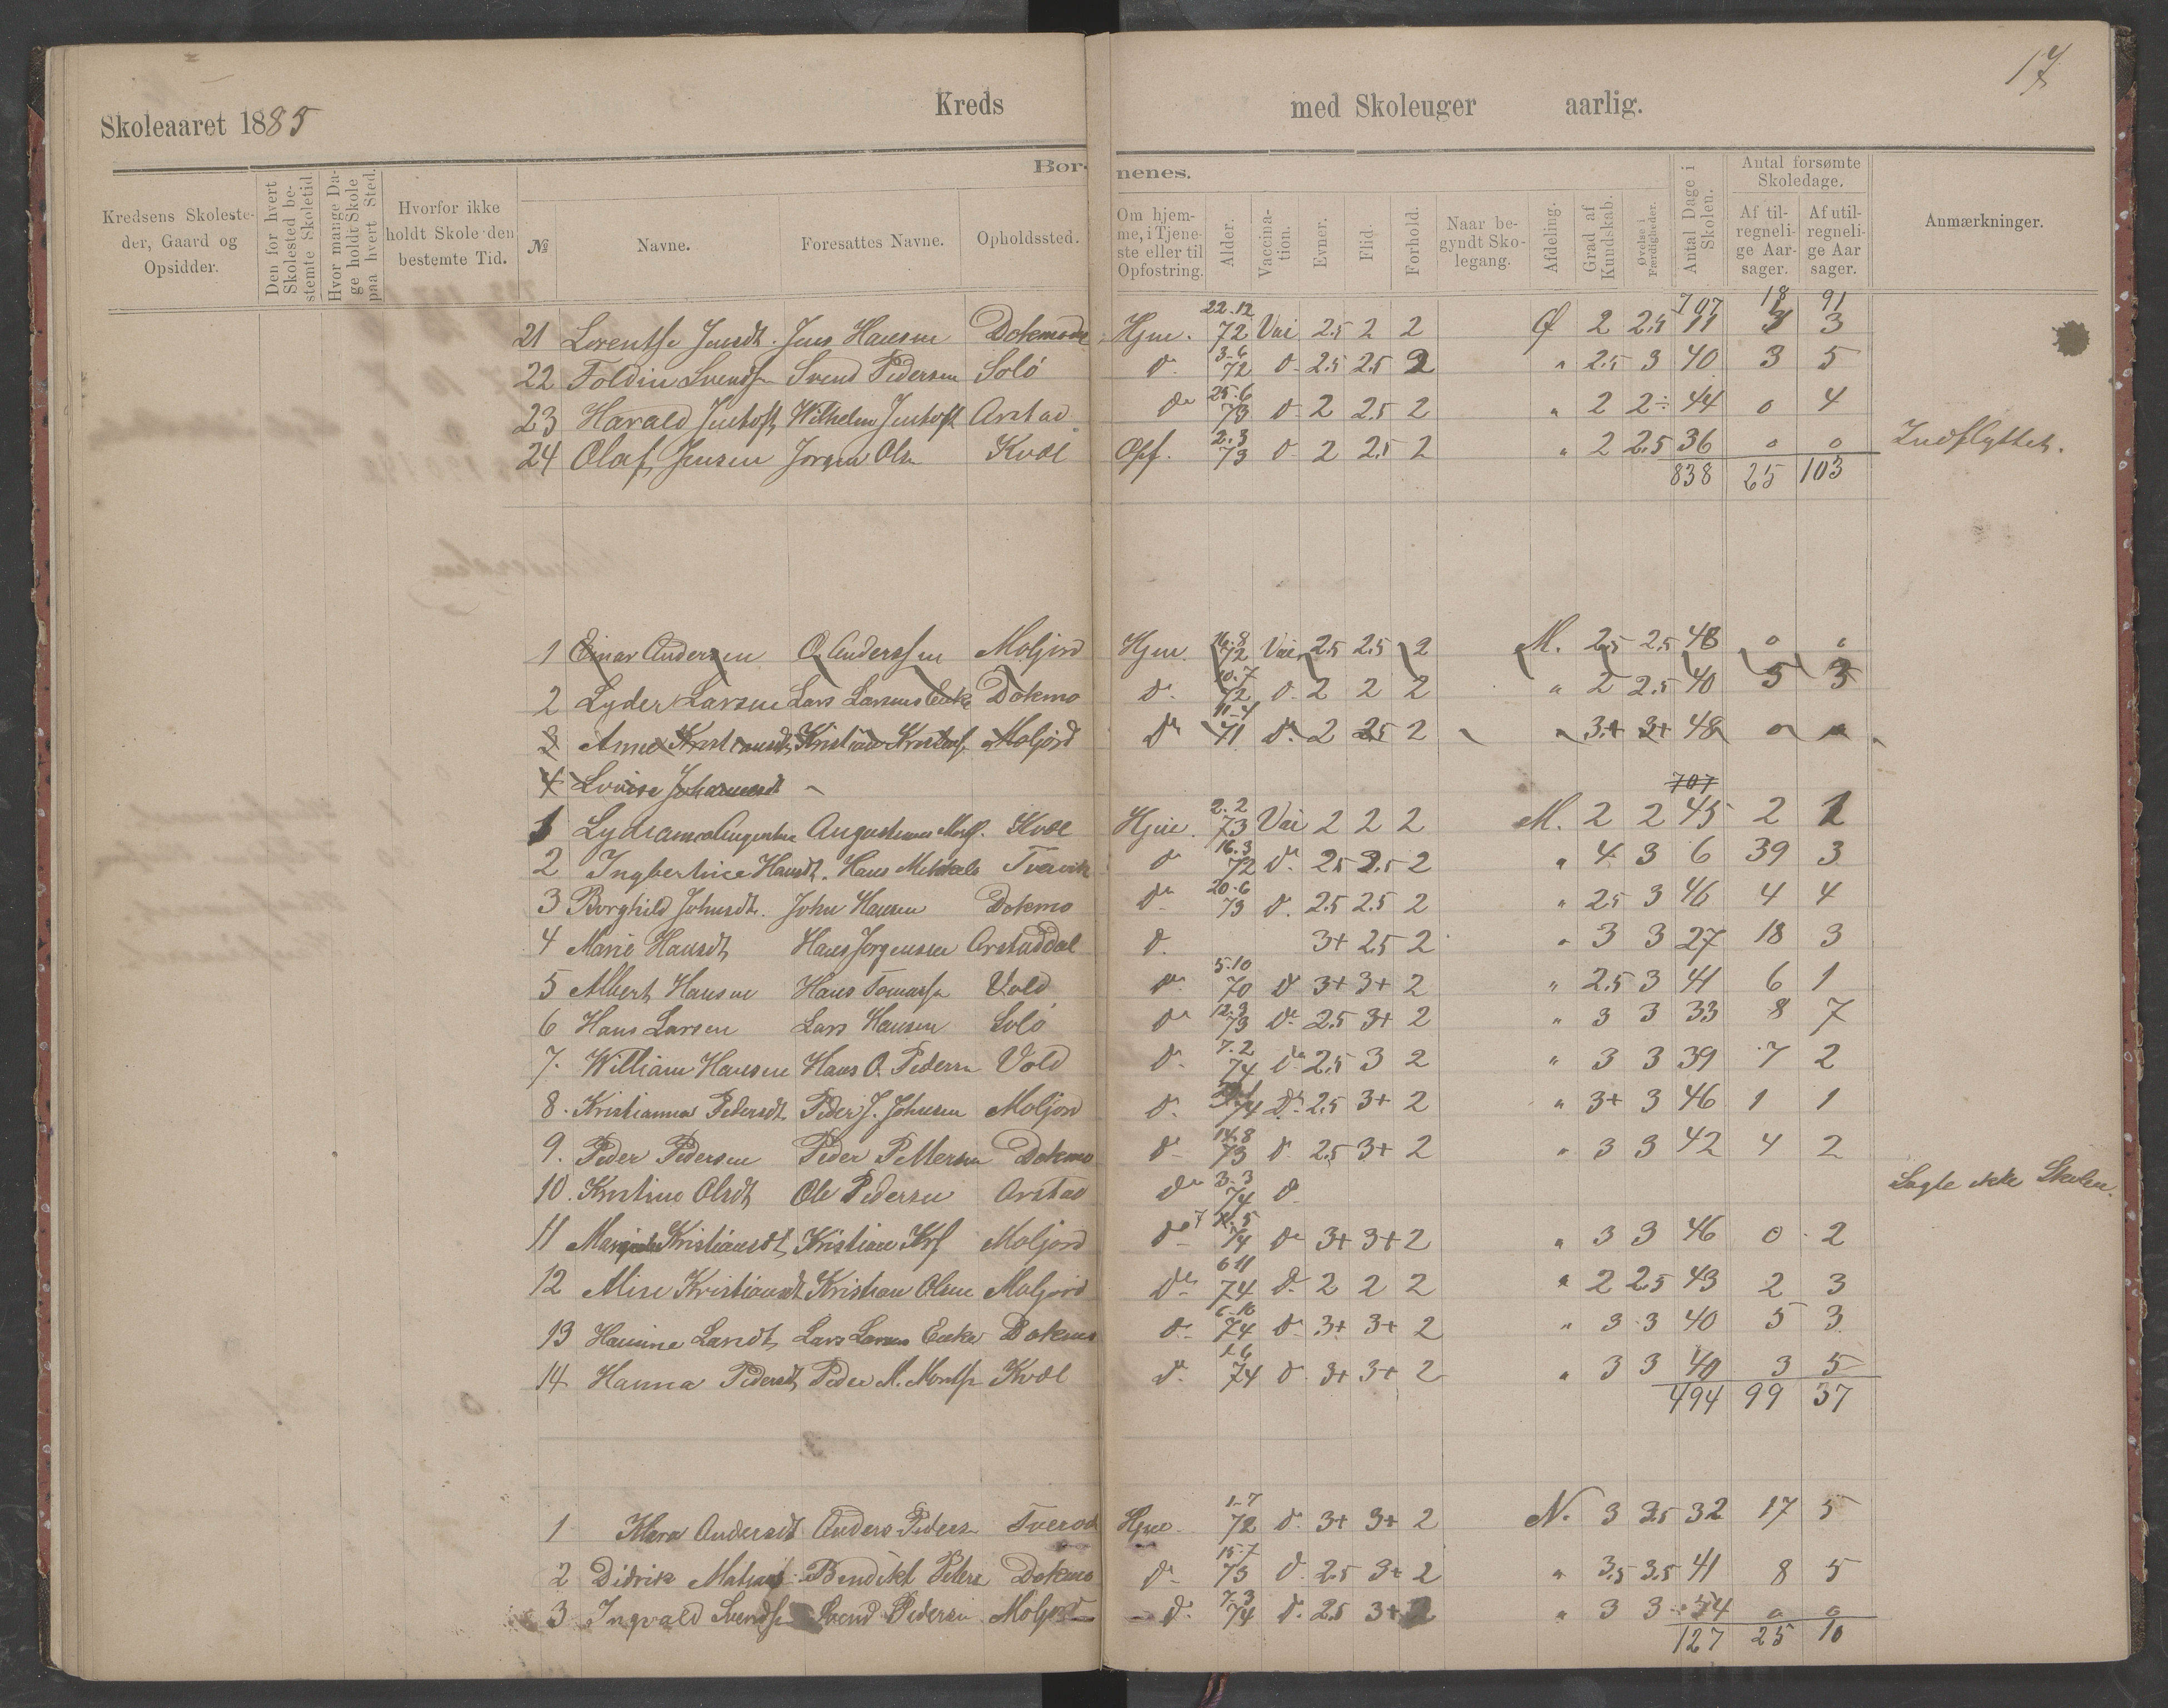 17
Skoleaaret 1885 Kreds med Skoleuger aarlig.
Børnenes.
Kredsens Skolesteder, Gaard og Opsidder. Den for hvert Skolested bestemte Skoletid Hvor mange Dage holdt Skole paa hvert Sted. Hvorfor ikke holdt Skole den bestemte Tid. No Navne. Foresattes Navne. Opholdssted. Om hjemme, i Tjeneste eller til Opfostring. Alder. Vaccination. Evner. Flid. Forhold. Naar begyndt Skolegang. Afdeling. Grad af Kundskab. Øvelse i Færdigheder. Antal Dage i Skolen. Antal forsømte Skoledage. Af tilregnelige Aarsager. Af utilregnelige Aarsager. Anmærkninger.
707 18 91
21 Lorentse Jensdt. Jens Hansen Dokmo Hjm. 22.12 72 Vai 2.5 2 2 Ø 2 2.5 11 4 3
22 Toldin Svends. Svend Pedersen Solö d. 3-6 72 d. 2.5 2.5 2 " 2.5 3 40 3 5
23 Harald Jentoft Wilhelm Jentoft Arstad do 25.6 73 d. 2 2.5 2 " 2 2÷ 44 0 4
24 Olaf Jensen Jørgen Ols. Kvæl Opf. 2.3 73 d. 2 2.5 2 " 2 2.5 36 0 0 Indflyttet.
838 25 103
1 Einar Andersen O. Anderssen Moljord Hjm. 16.8 72 Vai 2.5 2.5 2 M. 2.5 2.5 48 0 0
2 Lyder Larsen Lars Larsens Enke Dokmo d. 10.7 72 d. 2 2 2 " 2 2.5 40 5 3
3 Anne Kristiansdt. Kristian Kristofs. Moljord do 11-4 71 d. 2 2.5 2 " 3+ 3+ 48 0 0
4 Lovise Johannesdt
707
1 Lydiaanna Augustin Augustinus Hjm. Kvæl Hjm. 2.2 73 Vai 2 2 2 M. 2 2 45 2 1
2 Ingbertine Hansdt. Hans Mikkels. Tvervik d. 16.3 72 d. 2.5 2.5 2 " 4 3 6 39 3
3 Borghild Johnsdt. John Hansen Dokmo do 20.6 73 d. 2.5 2.5 2 " 2.5 3 46 4 4
4 Marie Hansdt. Hans Jørgensen Arstaddal d. 3+ 2.5 2 " 3 3 27 18 3
5 Albert Hansen Hans Tomass. Vold d. 5.10 70 d 3+ 3+ 2 " 2.5 3 41 6 1
6 Hans Larsen Lars Hansen Solö do 12.3 73 d. 2.5 3+ 2 " 3 3 33 8 7
7. William Hansen Hans O. Peders. Vold d. 7.2 74 do 2.5 3 2 " 3 3 39 7 2
8. Kristianna Pedersdt. Peder J. Johnsen Moljord d. 74 d. 2.5 3+ 2 " 3+ 3 46 1 1
9. Peder Pedersen Peder Pettersen Dokmo d. 14.8 73 d. 2.5 3+ 2 " 3 3 42 4 2
10. Kristine Olsdt. Ole Pedersen Arstad do 3-3 74 d. Søgte ikke Skolen.
11 Kristiansdt. Kristian Krf Moljord do 74 do 3+ 3+ 2 " 3 3 46 0 2
12 Mise Kristiansdt. Kristian Olsen Moljord do 6 11 74 d. 2 2 2 " 2 2.5 43 2 3
13 Hansine Larsdt. Lars Larsens Enke Dokmo d. 6-10 74 d. 3+ 3+ 2 " 3 3 40 5 3
14 Hanna Pedersdt. Peder M. Kvæl d. 1.6 74 d. 3+ 3+ 2 " 3 3 40 3 5
494 99 37
1 Klara Andersdt. Anders Peders. Hjm. 1-7 72 d. 3+ 3+ 2 N. 3 3.5 32 17 5
2 Didrik Bendikt Peters. Dokmo d. 15.7 73 d. 2.5 3+ 2 " 3.5 3.5 41 8 5
3 Ingvald Svends. Svend Pedersen Moljord d. 7.3 74 d. 2.5 3+ 2 " 3 3 54 0 0
127 25 10